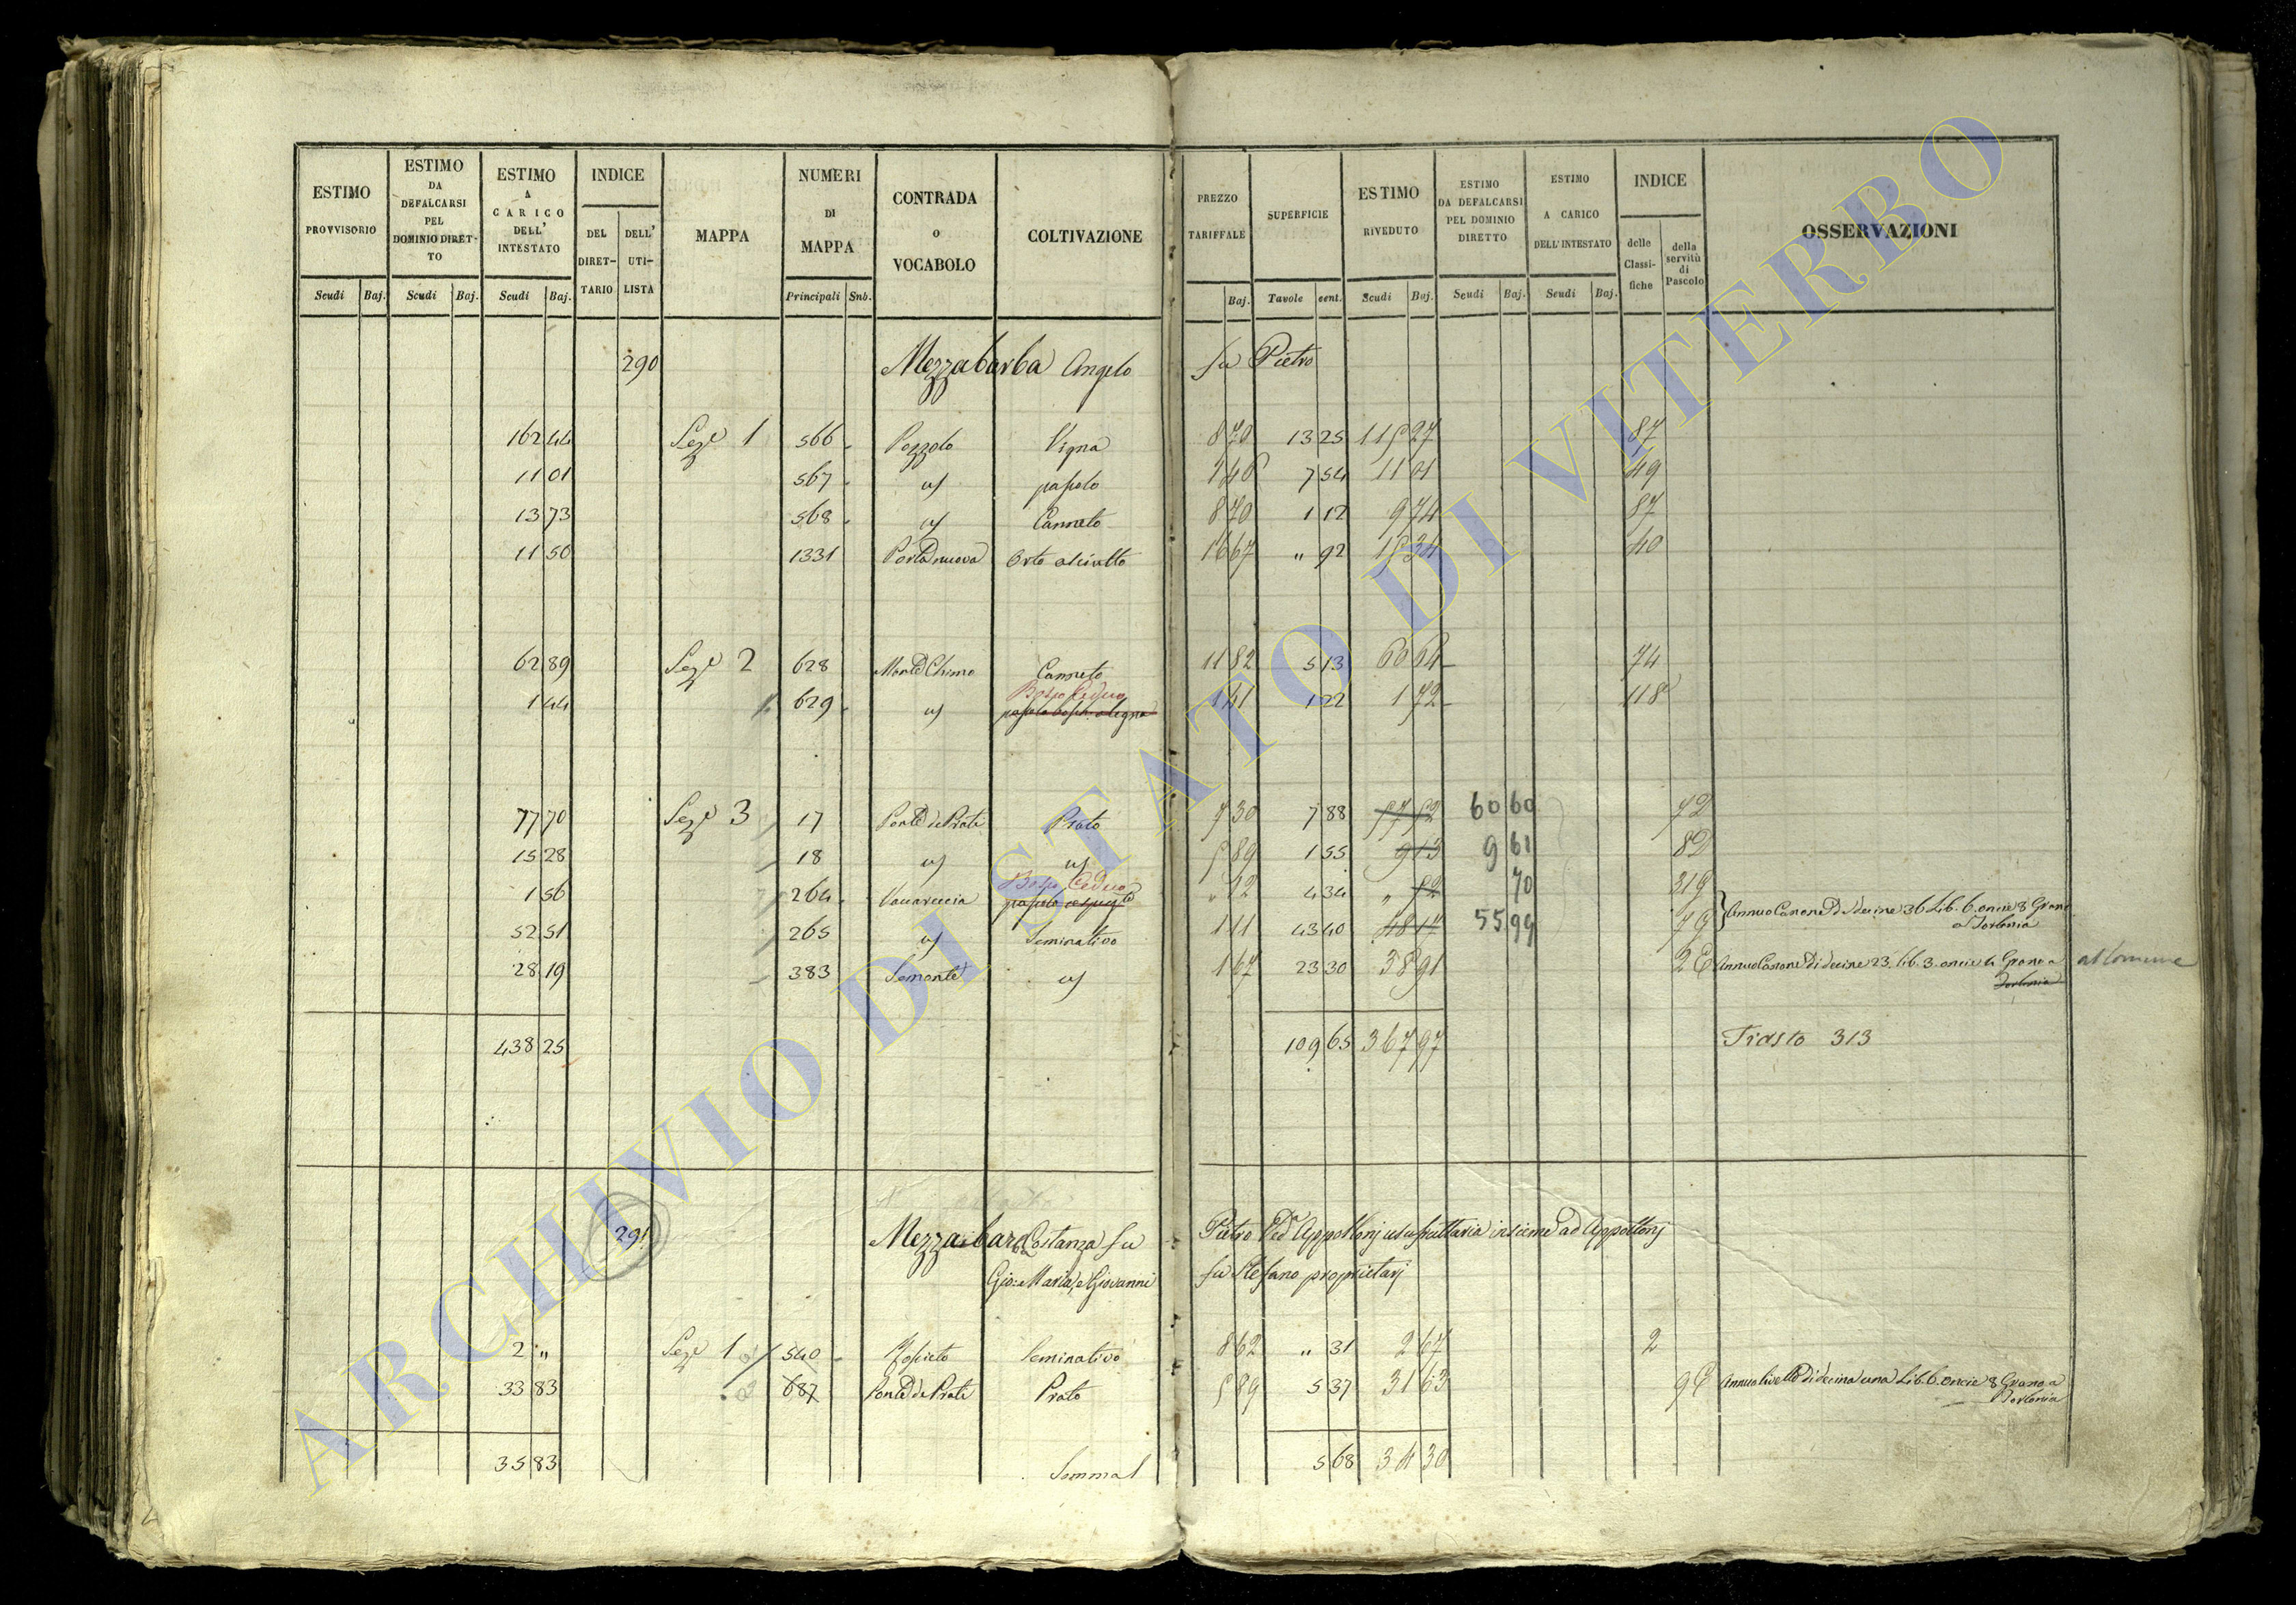 ESTIMO PROVVISORIO Scudi Baj.
ESTIMO DA DEFALCARSI PEL DOMINIO DIRET-TO Scudi Baj.
ESTIMO A CARICO DELL' INTESTATO Scudi Baj.
INDICE DEL DIRET-TARIO DELL' UTI-LISTA
MAPPA
NUMERI DI MAPPA Principali Snb.
CONTRADA O VOCABOLO
COLTIVAZIONE
PREZZO TARIFFALE Baj.
SUPERFICIE Tavole cent.
ESTIMO RIVEDUTO Scudi Baj.
ESTIMO DA DEFALCARSI PEL DOMINIO DIRETTO Scudi Baj.
ESTIMO A CARICO DELL'INTESTATO Scudi Baj.
INDICE delle Classi-fiche della servitù di Pascolo
OSSERVAZIONI
290 Mezzabarba Angelo fu Pietro
162 44 Sez.e 1 566 Pozzolo Vigna 8 70 13 25 115 27 87
11 01 567 pascolo 1 46 7 54 11 01 49
13 73 568 Canneto 8 70 1 12 9 74 87
11 50 1331 Porta nuova Orto asciutto 16 67 " 92 15 34 40
62 89 Sez.e 2 628 Canneto 11 82 5 13 60 64 74
1 44 629 Bosco Ceduo 1 41 1 22 1 72 118
77 70 Sez.e 3 17 Ponte de Prati Prato 7 30 7 88 57 52 60 60 72
15 28 18 5 89 1 55 9 13 9 61 82
1 56 264 Vaccareccia Bosco Ceduo " 12 4 34 " 52 70 319
52 51 265 Seminativo 1 11 43 40 48 17 55 99 79 Annuo Canone di decine 36 Lib. 6. oncie 8 Grano a Torlonia
28 19 383 Semonte 1 67 23 30 38 91 2 Annuo Canone di decine 23. Lib. 3. oncie 6 Grano a Torlonia al Comune
438 25 109 65 367 97 Trasto 313
291 Mezzabarba Costanza fu Pietro Ved.a Appollonj usufruttuaria insieme ad Appollonj
Gio: Maria, e Giovanni fu Stefano proprietarj
2 " Sez.e 1 540 Seminativo 8 62 " 31 2 67 2
33 83 687 Ponte de Prati Prato 5 89 5 37 31 63 9 Annuo livello di decina una Lib. 6. oncie 8 Grano a Torlonia
35 83 Somma 5 68 34 30
ARCHIVIO DI STATO DI VITERBO